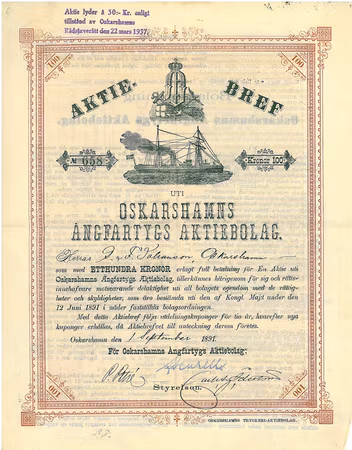 Aktie lyder å 30:- Kr. enligt
tillstånd av Oskarshamns
Rådstuverätt den 22 mars 1937.
100
100
AKTIE-
BREF
№ 658
Kronor 100
UTI
OSKARSHAMNS
ÅNGFARTYGS AKTIEBOLAG.
Herrar Johansson, Oskarshamn
som med ETTHUNDRA KRONOR erlagt full betalning för En Aktie uti
Oskarshamns Ångfartygs Aktiebolag, tillerkännes härigenom för sig och rättsinnehafvare
motsvarande delaktighet uti all bolagets egendom med de rättigheter
och skyldigheter, som äro bestämda uti den af Kongl. Maj:t under den
12 Juni 1891 i nåder fastställda bolagsordningen.
Med detta Aktiebref följa utdelningskuponger för tio år, hvarefter nya
kuponger erhållas, då Aktiebrefvet till anteckning derom företes.
Oskarshamn den 1 September 1891.
För Oskarshamns Ångfartygs Aktiebolag:
Styrelsen.
100
100
OSKARSHAMNS TRYCKERI-AKTIEBOLAG.